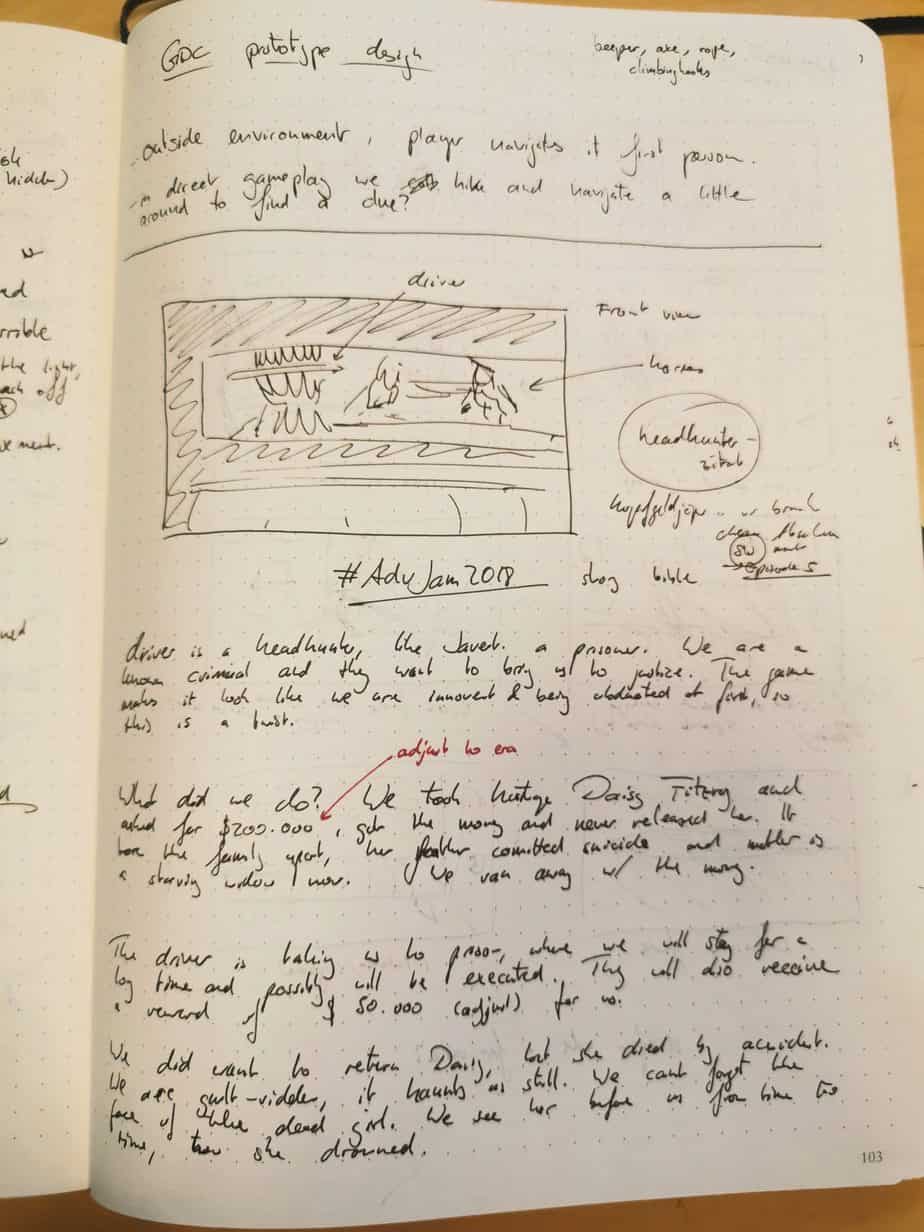 GDC prototype design
beeper, axe, rope,
climbinghooks
- outside environment, player navigates it first person.
- in direct gameplay we hike and navigate a little
around to find a clue?
driver
Front view
horses
headhunter-
zitat
kopfgeldjäger
SW
Episode 5
#AdvJam2018 story bible
driver is a headhunter, like Javert. a prisoner. We are a
known criminal and they want to bring us to justice. The game
makes it look like we are innocent & being abducted at first, so
this is a twist.
adjust to era
What did we do? We took hostage Daisy and
asked for $200.000, got the money and never released her. It
tore the family apart, her father comitted suicide and mother is
a starving widow now. We ran away w/ the money.
The driver is taking us to prison, where we will stay for a
long time and possibly will be executed. They will also receive
a reward of $ 50.000 (adjust) for us.
We did want to return Daisy, but she died by accident.
We are guilt-ridden, it haunts us still. We cant forget the
face of the dead girl. We see her before us from time to
time, how she drowned.
103
hidden)
the light,